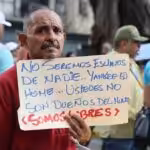 NO SEREMOS ESCLAVOS
DE NADIE. YANKEE GO
HOME - USTEDES NO
SON DUEÑOS DEL MUNDO
¡SOMOS LIBRES!